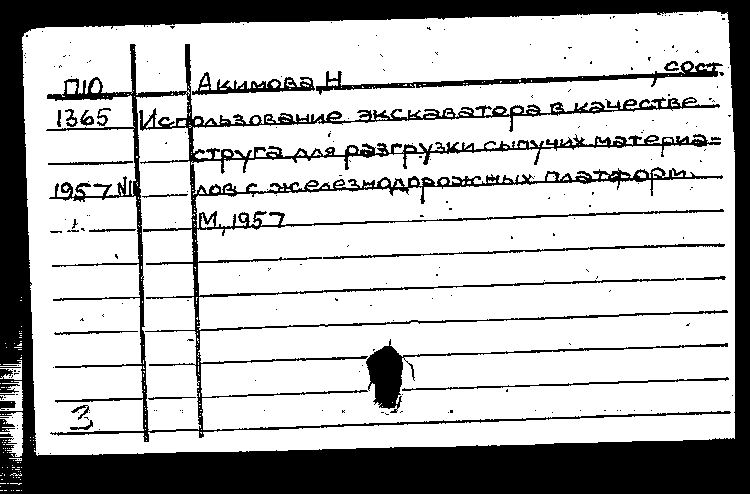 П10 Акимова, Н , сост.
1365 Использование экскаватора в качестве
струга для разгрузки сыпучих материа=
1957 N11 лов с железнодорожных платформ.
М., 1957
3